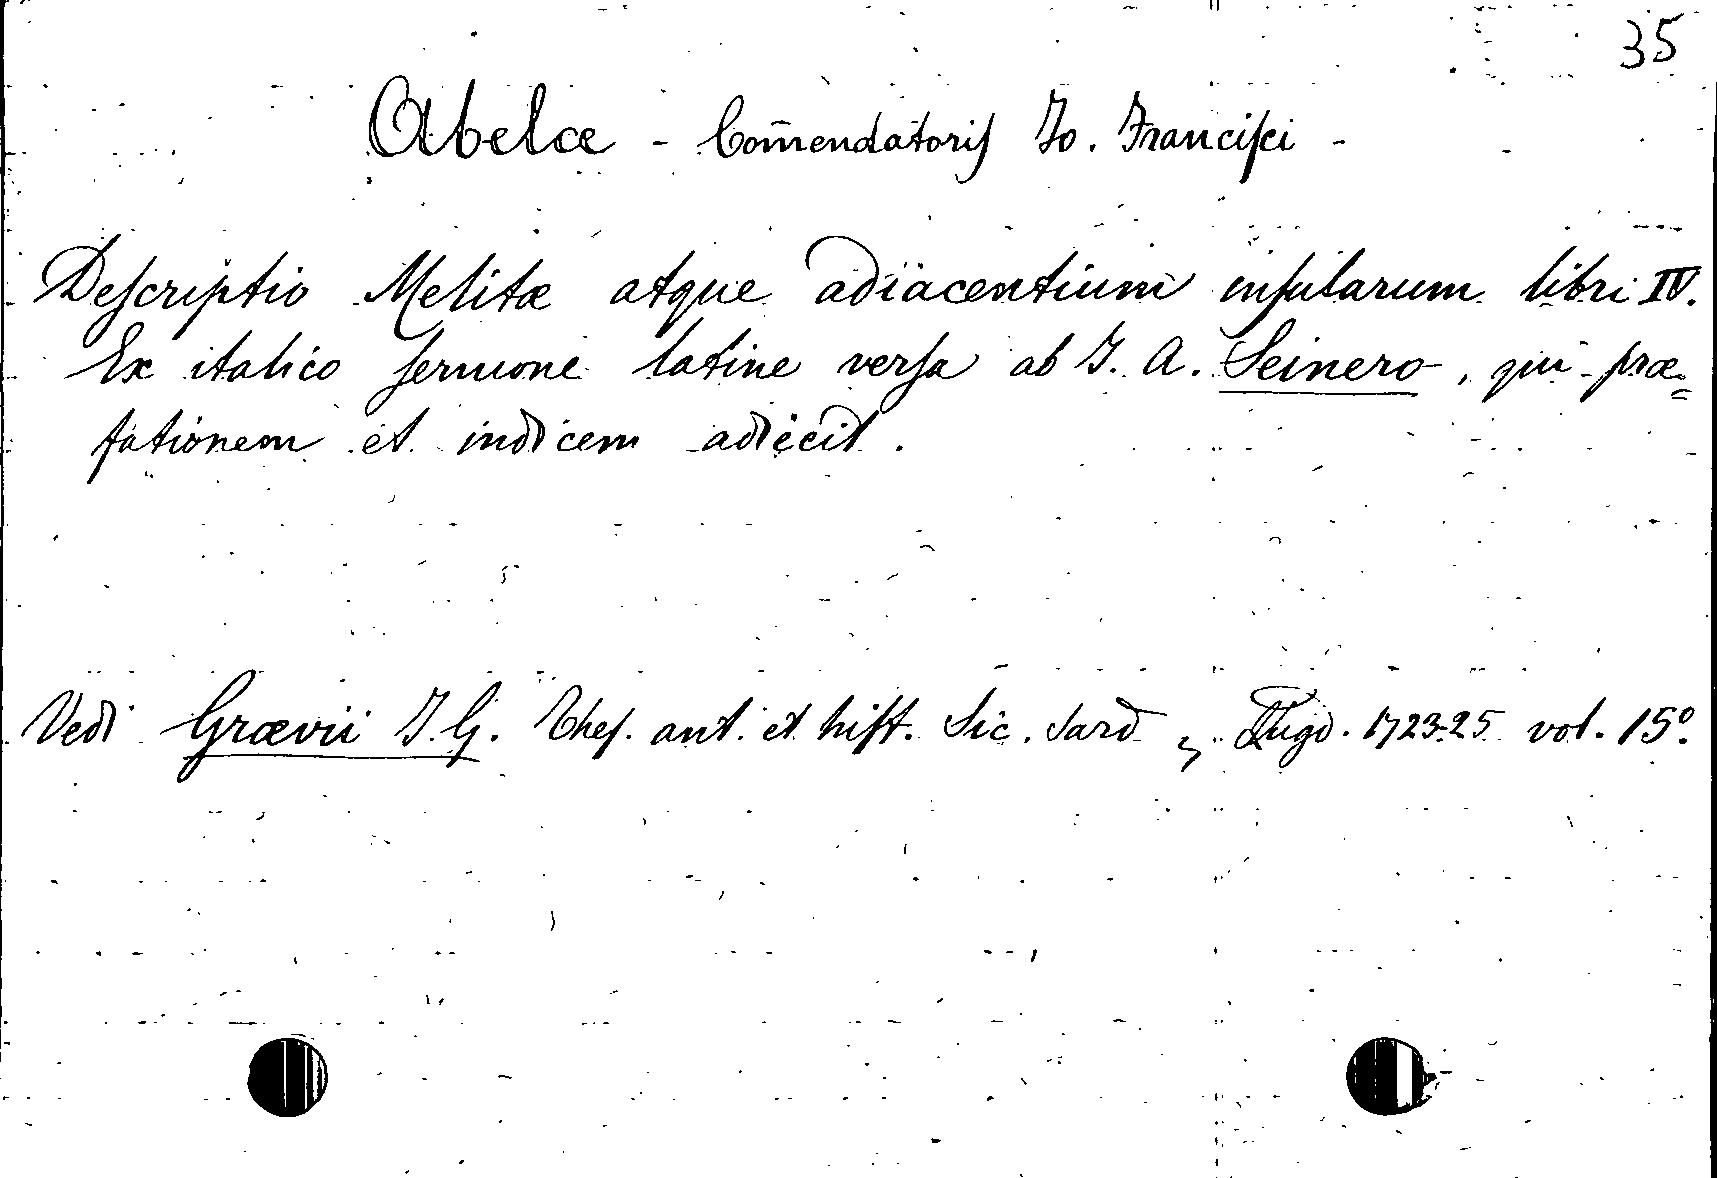 35
Abelæ - Com̄endatoris Jo. Francisci -
Descriptio Melitæ atque adiacentium insularum libri IV.
Ex italico sermone latine versa ab J. A. Seinero, qui præ=
fationem et indicem adiecit.
Vedi Grævii J. G. Thes. ant. et hist. Sic. Sard., Lugd. 1723-25 vol. 15º.